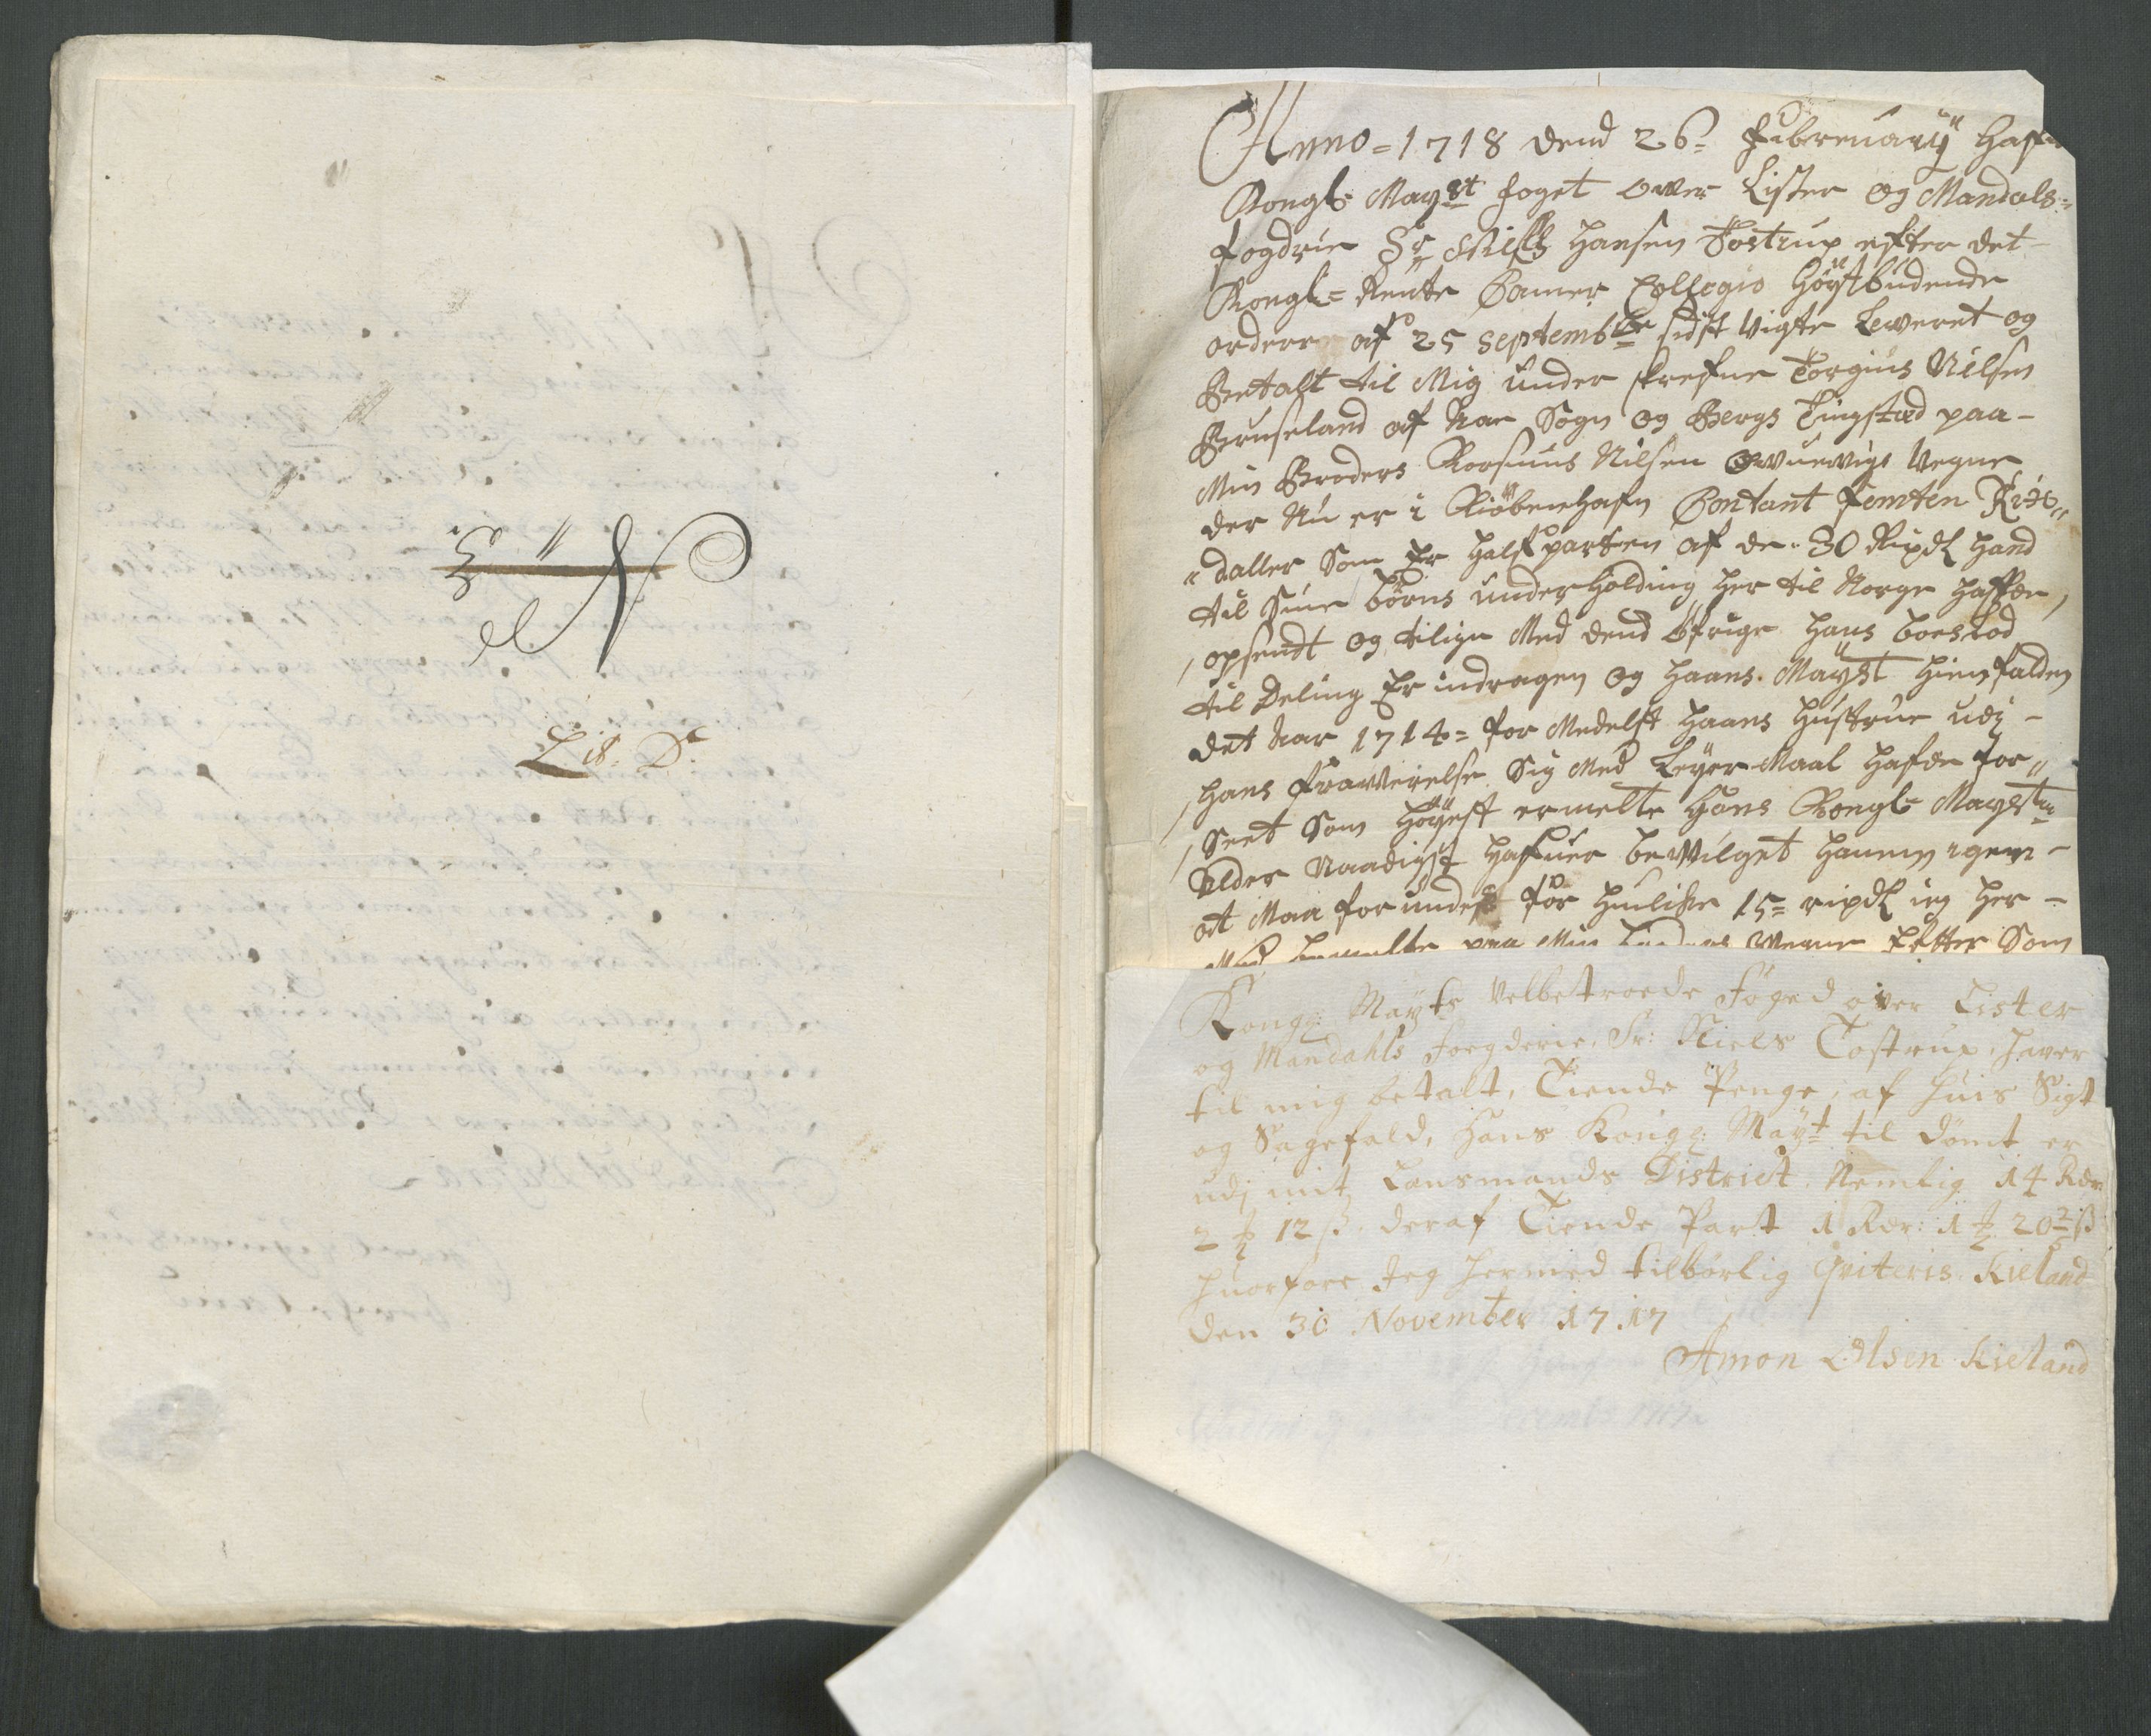 Lit. D:
Anno = 1718 dend 26 = Februarij Hafu
Kongl: Mayst foget over Lister og Mandals =
fogdrie Sr Niels Hansen Tostrup efter det
Kongl = Rente Camer Collegio Höystbüdende
ordere af 25 Septembr sidst Leweret og
Betalt til Mig under skrefne Torgius Nilsen
Bruseland af Sogn og Bergs Tingstæd paa -
Min Broders Nilsen Vegne
der Nu er i Kiöbenhafn Contant Femten Rix
daller Som Er Half parten af de 30 Rixdl Hand
til Sine börns underholding her til Norge haffde
opsendt og tilige Med dend öfrige hans boeslod
til Deling Er indragen og Haans Mayst Hiemfalden
det Aar 1714 = for Medelst Haans Hüstrue udj -
hans fraverelse Sig Med Leyer Maal Hafde for
Seet Som Höyest ermelte Hans Kongl Mayst
Naadigst Hafuer bewilget Hannem igien -
at Maa forundes för Huilche 15 = rixdl ieg Her -
paa Min Vegne Som
Kongl: Mayts Velbetroede Foged over Lister
og Mandahls Foegderie, Sr: Niels Tostrup, haver
til mig betalt, Tiende Penge, af huis Sigt
og Sagefald, Hans Kongl: Mayt til dömt er
udj mit Lænsmands District. Nemlig 14 Rdr
2 12 ß. deraf Tiende Part 1 Rdr: 1 20 ß
huorfore Jeg hermed tilbörlig Qviteris. Kieland
den 30 November 1717
Amon Olsen Kieland